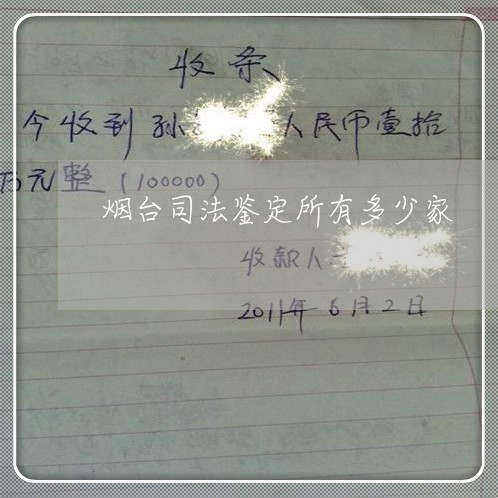 收条
今收到孙 人民币壹拾
万元整(100000)
烟台司法鉴定所有多少家
收款人
2011年6月2日